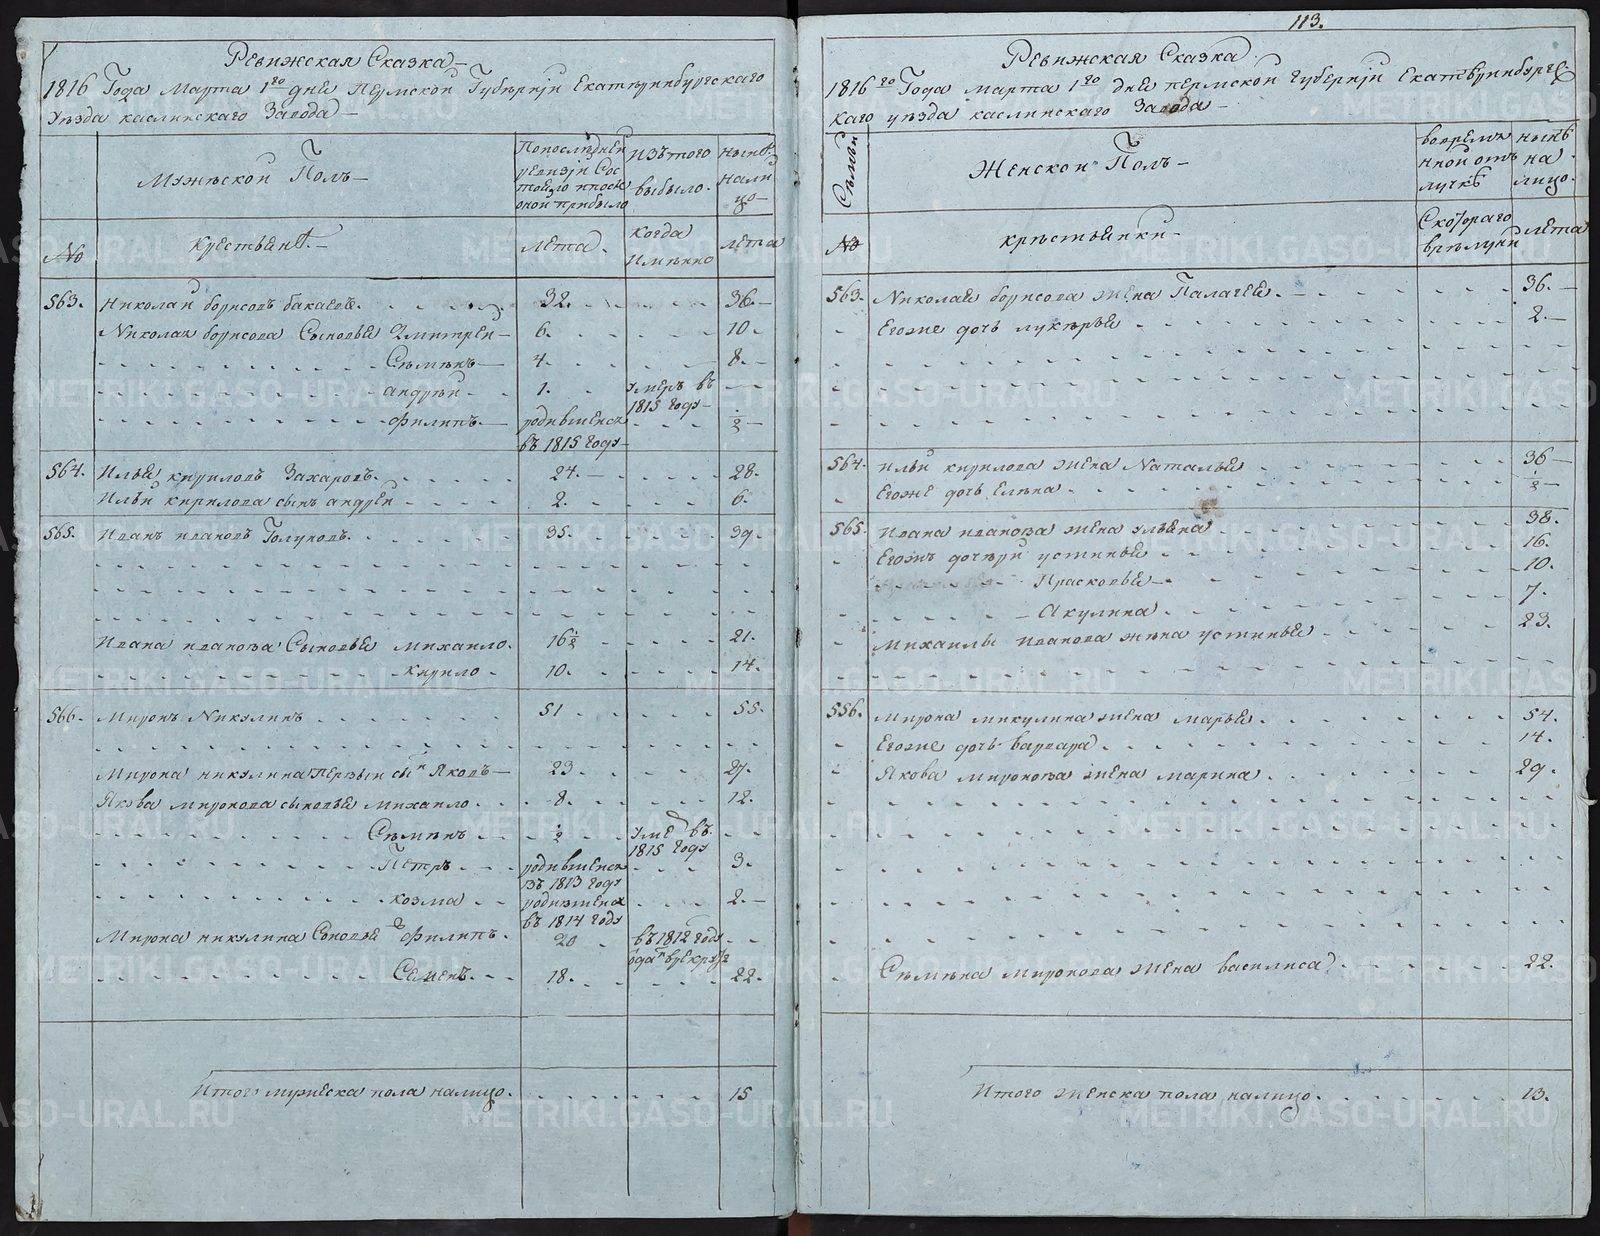 Ревижская Сказка
1816 Года Марта 1го дня Пермской Губернїи Екатеринбургскаго
уезда каслинскаго Завода
Мужеской Полъ
Попоследней
ревизїи Сос
тояло ипосле
оной прибыло
Изътого
выбыло.
ныне
нали
цо
№
крестьяне.
лета.
когда
имянно
лета
563. Николай борисовъ бакаевъ. 32. 36
Николая борисова Сыновья Дмитрей 6. 10.
Семенъ 4. 8.
андрей 1. умеръ въ
1815 году
Филипъ родившейся 1/2
въ 1815 году
564. Илья кириловъ Захаровъ. 24. 28.
Ильи кирилова сынъ андрей 2. 6.
565. Иванъ ивановъ Голуновъ. 35. 39.
Ивана иванова Сыновья михаило. 16 1/2 21.
кирило 10. 14.
566. Миронъ Никулинъ 51 55.
Мирона никулина первый сынъ Яковъ 23. 27.
Якова миронова сыновья михаило. 8. 12.
Семенъ 1/2 умре въ
1815 году
Петръ родившейся 3.
въ 1813 году
козма родившейся 2.
въ 1814 году
Мирона никулина Сыновья Филипъ. 20 въ 1812 году
оданъ врекруты
Семенъ. 18. 22.
Итого мужеска пола налицо. 15
113.
Ревижская Сказка
1816го Года марта 1го дня пермской губернїи Екатеринбургс
каго уезда каслинскаго Завода
Семьи
Женской Полъ
вовремян
нной отъ
лучке
ныне
на
лицо.
№
крестьянки
Скотораго
времяни
лета
563. Николая борисова жена Палагея. 36.
Егоже дочь лукерья 2.
564. ильи кирилова жена Наталья 36
Егоже дочь Елена. 1/2
565. Ивана иванова жена ульяна 38.
Егожъ дочери устинья 16.
Прасковья 10.
Акулина 7.
Михаилы иванова жена устинья 23.
556. Мирона микулина жена марья. 54.
Егоже дочь варвара 14.
Якова миронова жена марина. 29.
Семена миронова жена василиса 22.
Итого женска пола налицо. 13.
METRIKI.GASO-URAL.RU